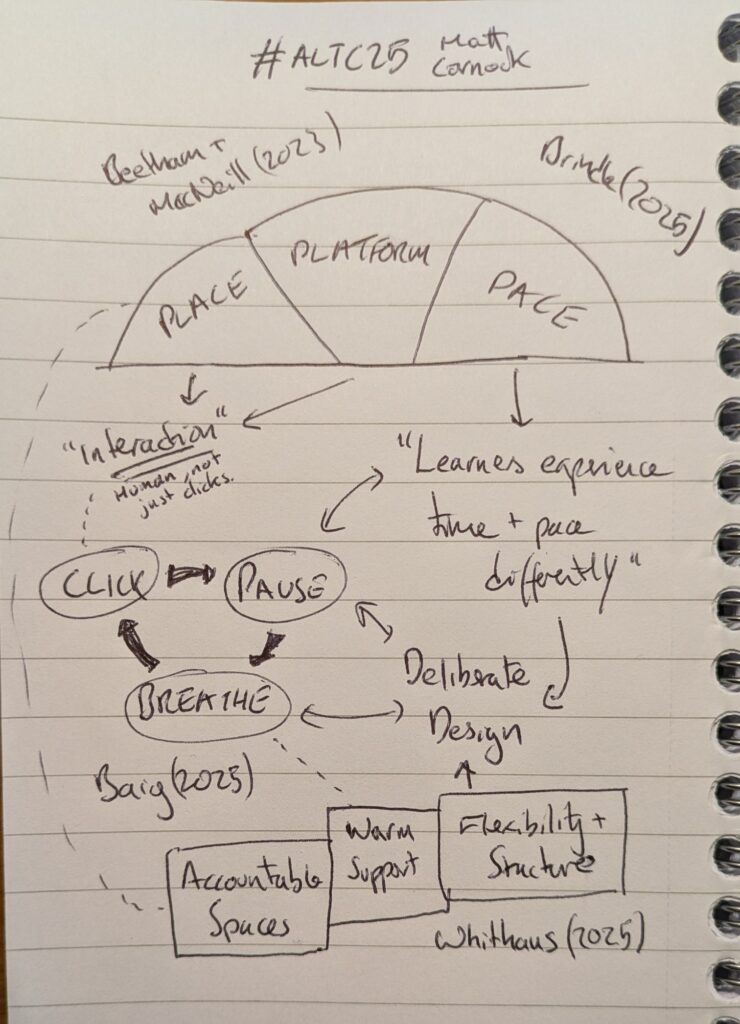 #ALTC25 Matt
Cornock
Beetham +
MacNeill (2023)
Brindle (2025)
PLACE
PLATFORM
PACE
"Interaction"
Human, not
just clicks.
"Learners experience
time + pace
differently"
CLICK
PAUSE
BREATHE
Baig (2025)
Deliberate
Design
Accountable
Spaces
Warm
Support
Flexibility +
Structure
Whithaus (2025)